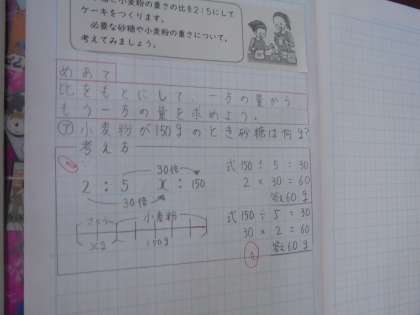 と小麦粉の重さの比を2:5にして
ケーキをつくります。
必要な砂糖や小麦粉の重さについて、
考えてみましょう。
めあて
比をもとにして、一方の量から
もう一方の量を求めよう。
㋐小麦粉が150gのとき砂糖は何g?
考える
30倍
2 : 5 x : 150
30倍
さとう 小麦粉
xg 150g
式 150 ÷ 5 = 30
2 × 30 = 60
答え 60 g
式 150 ÷ 5 = 30
30 × 2 = 60
答え 60 g